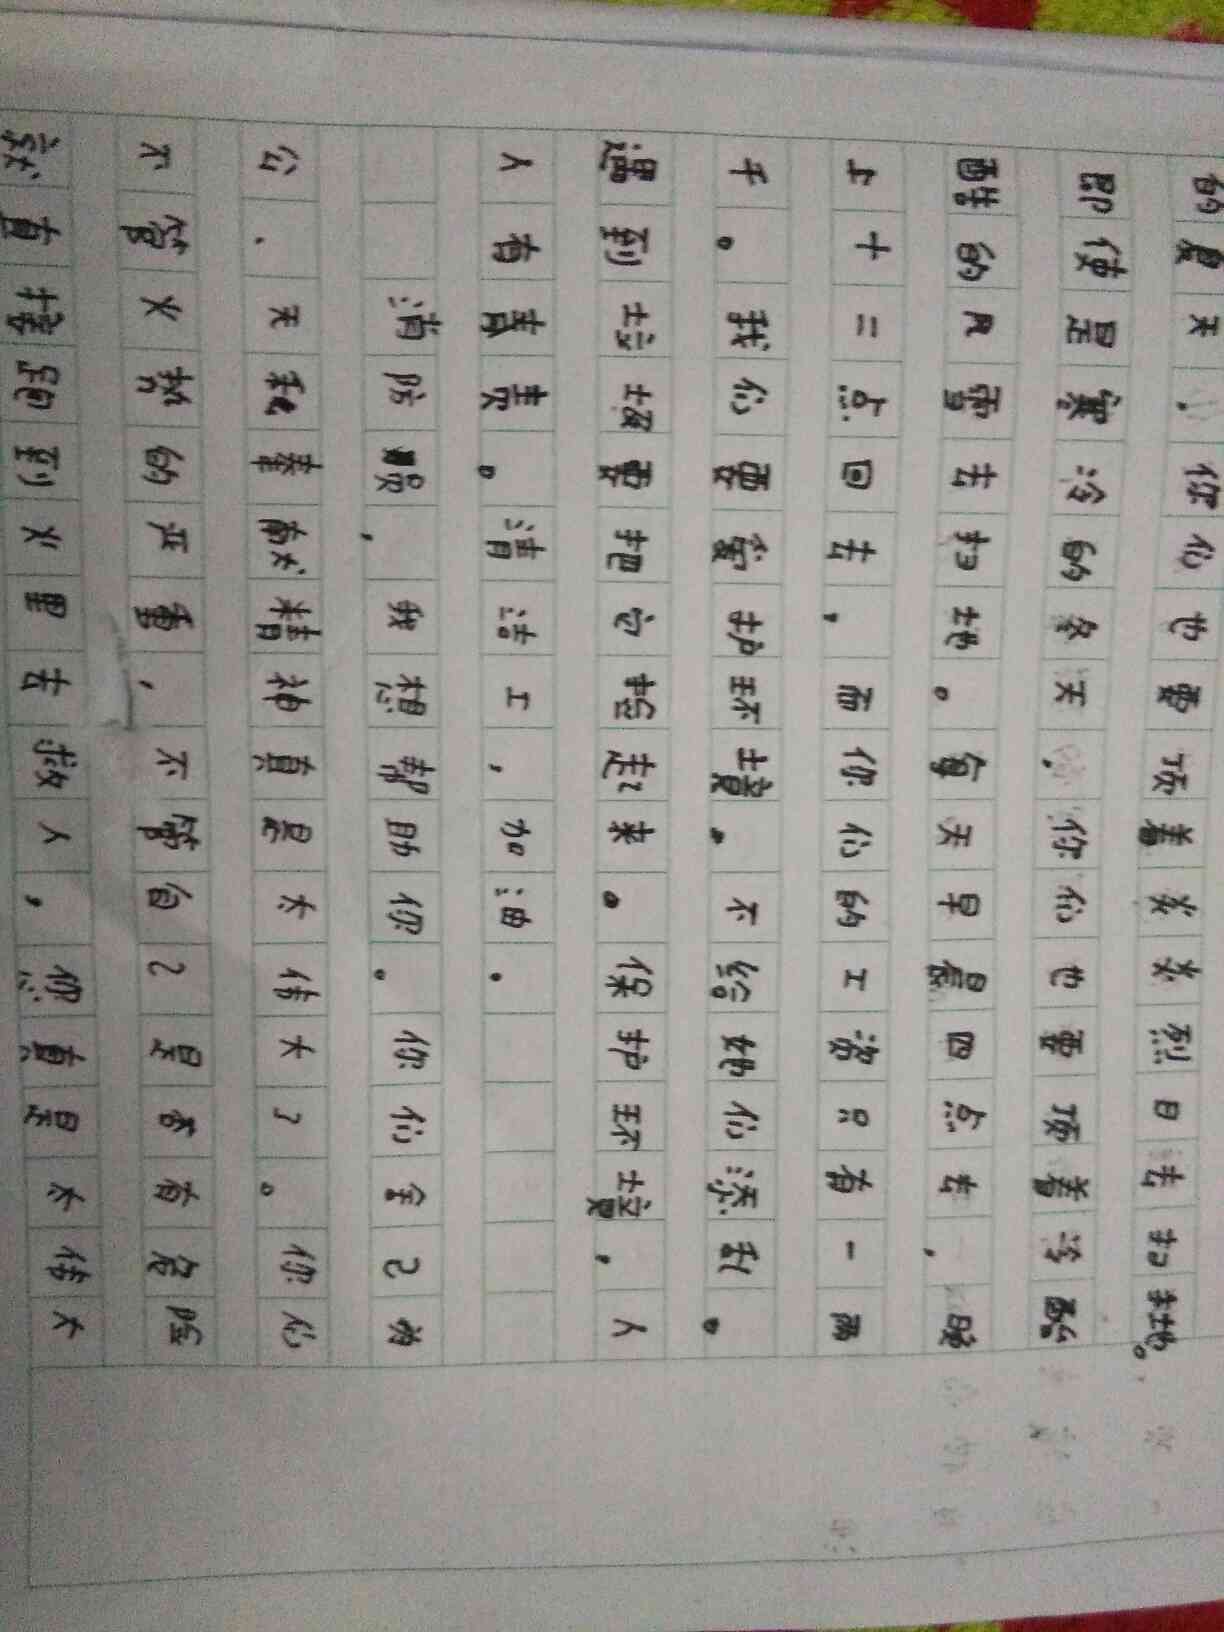 的夏天,你们也要顶着炎炎烈日去扫地。
即使是寒冷的冬天,你们也要顶着冷酷
的风雪去扫地。每天早晨四点去,晚
上十二点回去,而你们的工资只有一两
千。我们要爱护环境,不给她们添乱。
遇到垃圾要把它捡起来。保护环境,人
人有责。清洁工,加油.
消防员,我想帮助你。你们舍己为
公、无私奉献精神真是太伟大了。你们
不管火势的严重,不管自己是否有危险
就直接跑到火里去救人,您真是太伟大